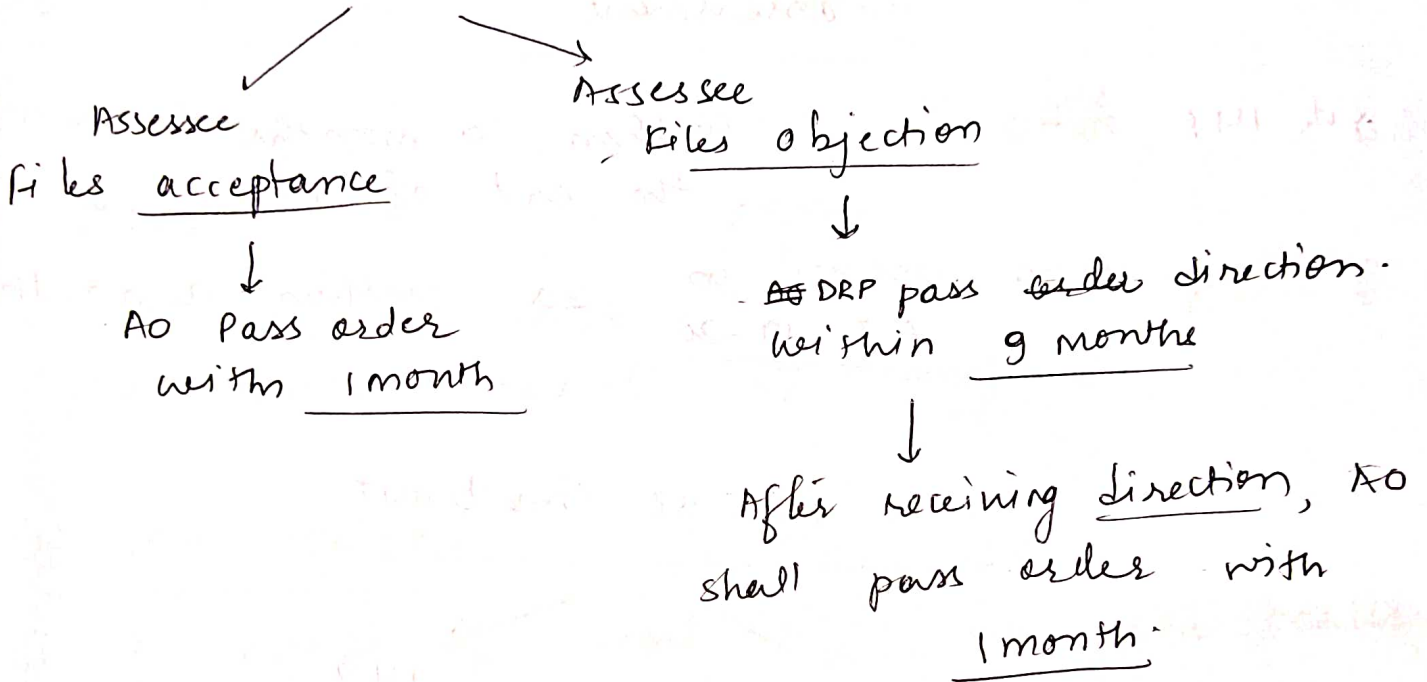 Assessee
files acceptance
AO Pass order
with 1 month
Assessee
files objection
AO DRP pass order direction.
within 9 months
After receiving direction, AO
shall pass order with
1 month.